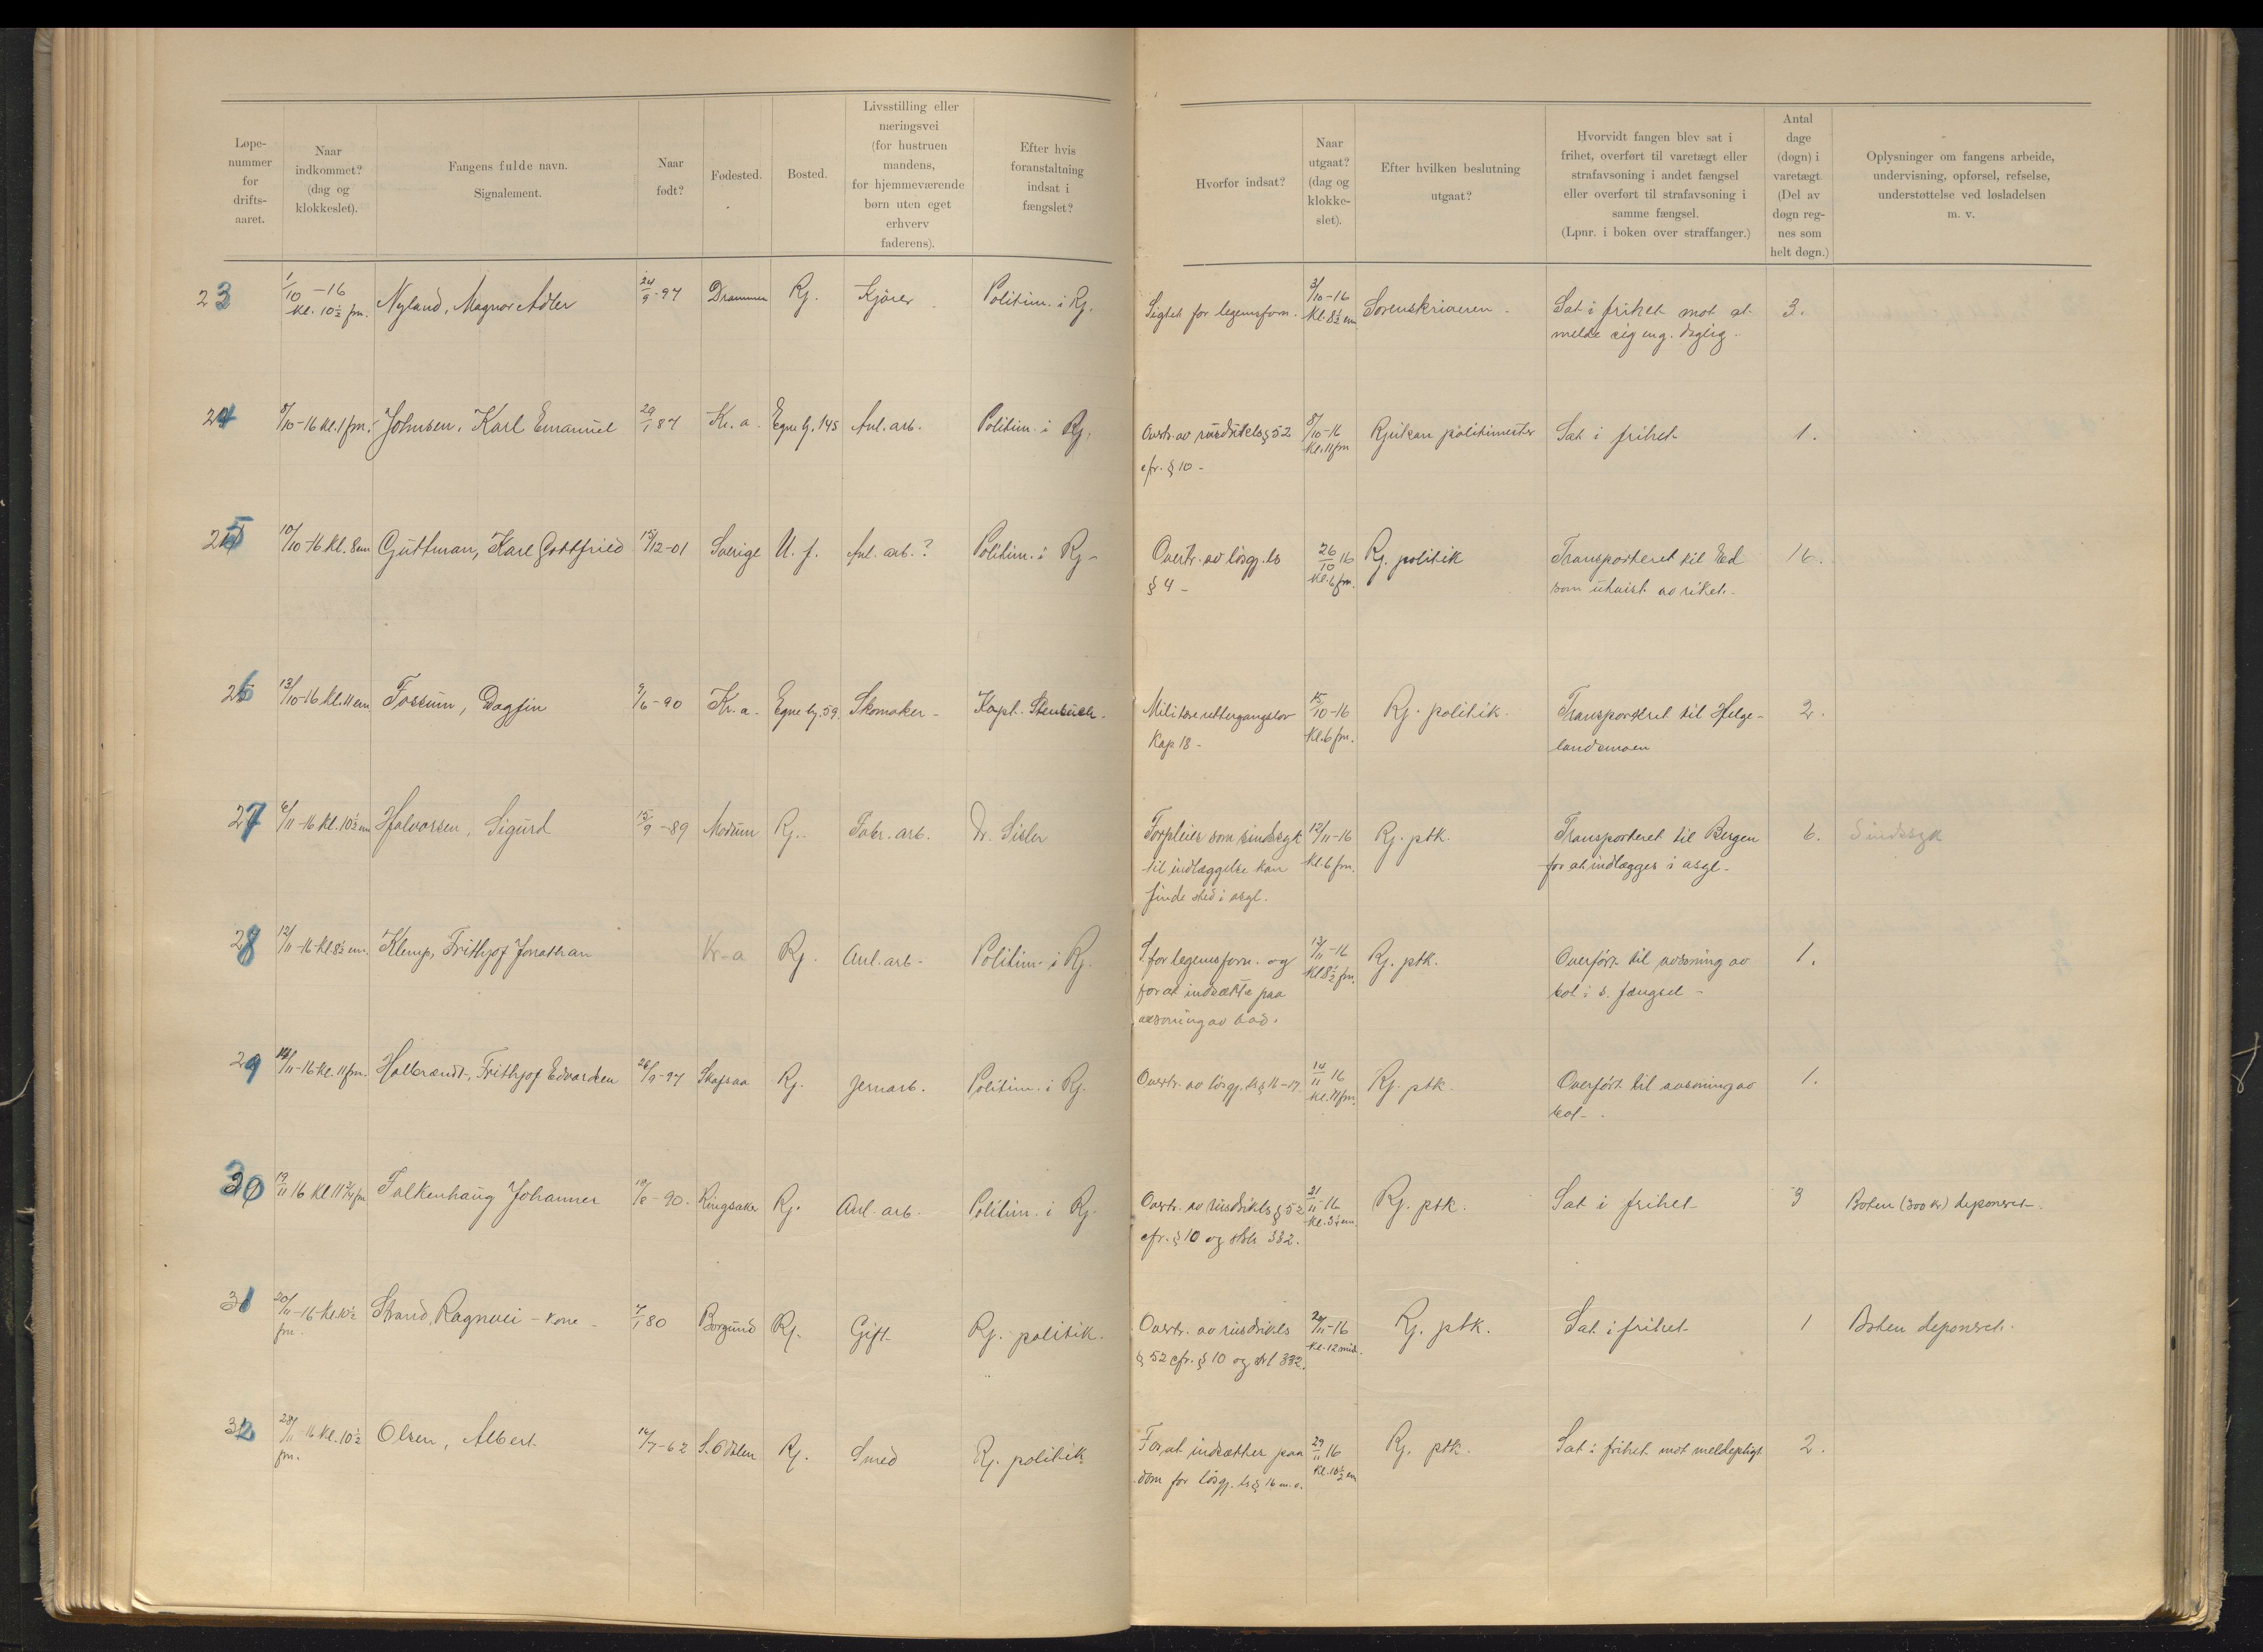 Løpe-
nummer
for
drifts-
aaret.
Naar
indkommet?
(dag og
klokkeslet).
Fangens fulde navn.
Signalement.
Naar
født?
Fødested.
Bosted.
Livsstilling eller
næringsvei
(for hustruen
mandens,
for hjemmeværende
børn uten eget
erhverv
faderens).
Efter hvis
foranstaltning
indsat i
fængslet?
Hvorfor indsat?
Naar
utgaat?
(dag og
klokke-
slet).
Efter hvilken beslutning
utgaat?
Hvorvidt fangen blev sat i
frihet, overført til varetægt eller
strafavsoning i andet fængsel
eller overført til strafavsoning i
samme fængsel.
(Lpnr. i boken over straffanger.)
Antal
dage
(døgn) i
varetægt.
(Del av
døgn reg-
nes som
helt døgn.)
Oplysninger om fangens arbeide,
undervisning, opførsel, refselse,
understøttelse ved løsladelsen
m. v.
23 1/10 -16 Kl. 10½ fm. Nyland, Magnor Adler 24/9-97 Drammen Rj. Kjører Politim. i Rj. Sigtet for legemsforn. 3/10-16 Kl. 8½ em Sorenskriveren. Sat i frihet mot at 3.
melde sig mg. daglig.
24 8/10-16 Kl. 1 fm. Johnsen, Karl Emanuel 29/1 87 Kr. a. Egne hj. 145 Anl. arb. Politim. i Rj. Overtr. av rusdrikls § 52 8/10-16 Kl. 11 fm Rjukan politimester Sat i frihet 1.
cfr. § 10 -
25 10/10-16 Kl. 8 em Guttman, Karl Gottfried 15/12-01 Sverige U. f. Anl. arb. ? Politim. i Rj- Overtr. av løsgj. ls 26/10 16 Kl. 6 fm. Rj. politik Transporteret til Ed 16.
§ 4 - som utvist av riket.
26 13/10-16 Kl. 11 em Fossum, Dagfin 9/6-90 Kr. a - Egne hj. 59. Skomaker - Kapt. Stenbuch. Militære rettergangslov 15/10-16 Kl. 6 fm. Rj. politik. Transporteret til Helge- 2.
Kap 18 - landsmoen
27 6/11-16 Kl. 10½ em Halvorsen, Sigurd 15/9-89 Modum Rj. Fabr. arb. Dr. Sisler Forpleies som sindssyk 12/11-16 Kl. 6 fm. Rj. ptk. Transporteret til Bergen 6. Sindssyk
til indlæggelse kan for at indlægges i asyl.
finde sted i asyl.
28 12/11-16 Kl. 8½ em. Klemp, Frithjof Jonathan Kr-a Rj. Anl. arb- Politim. i Rj. S. for legemsforn. og 13/11-16 Kl 8½ fm. Rj. ptk. Overført til avsoning av 1.
for at indsættes paa bot i s. fængsel -
avsoning av bod.
29 14/11-16 Kl. 11 fm. Halbrændt, Frithjof Edvardsen 26/9-97 Skafsaa Rj. Jernarb. Politim. i Rj. Overtr. av løsgj. ls § 16-17. 14/11 16 Kl. 11 fm. Rj. ptk. Overført til avsoning av 1.
bot.
30 19/11 16 Kl 11¾ fm Falkenhaug Johannes 18/8-90. Ringsaker Rj. Anl. arb. Politim. i Rj. Overtr. av rusdrikls § 52 21/11-16 Kl. 3½ em. Rj. ptk. Sat i frihet 3 Boten (300 kr) deponeret.
cfr. § 10 og strl 332.
31 20/11-16 Kl. 10½ fm. Strand, Ragnvei - kone - 7/1 80 Borgund Rj. Gift Rj. politik. Overtr. av rusdrikls 20/11-16 Kl. 12 mid. Rj. ptk. Sat i frihet 1 Boten deponeret.
§ 52 cfr. § 10 og strl 332.
32 28/11-16 Kl. 10½ fm. Olsen, Albert 16/7-62 S. Odalen Rj. Smed Rj. politik. For at indsættes paa 29/11 16 Kl. 10½ em Rj. ptk. Sat i frihet mot meldepligt 2.
dom for løsgj. ls § 16 m. v.